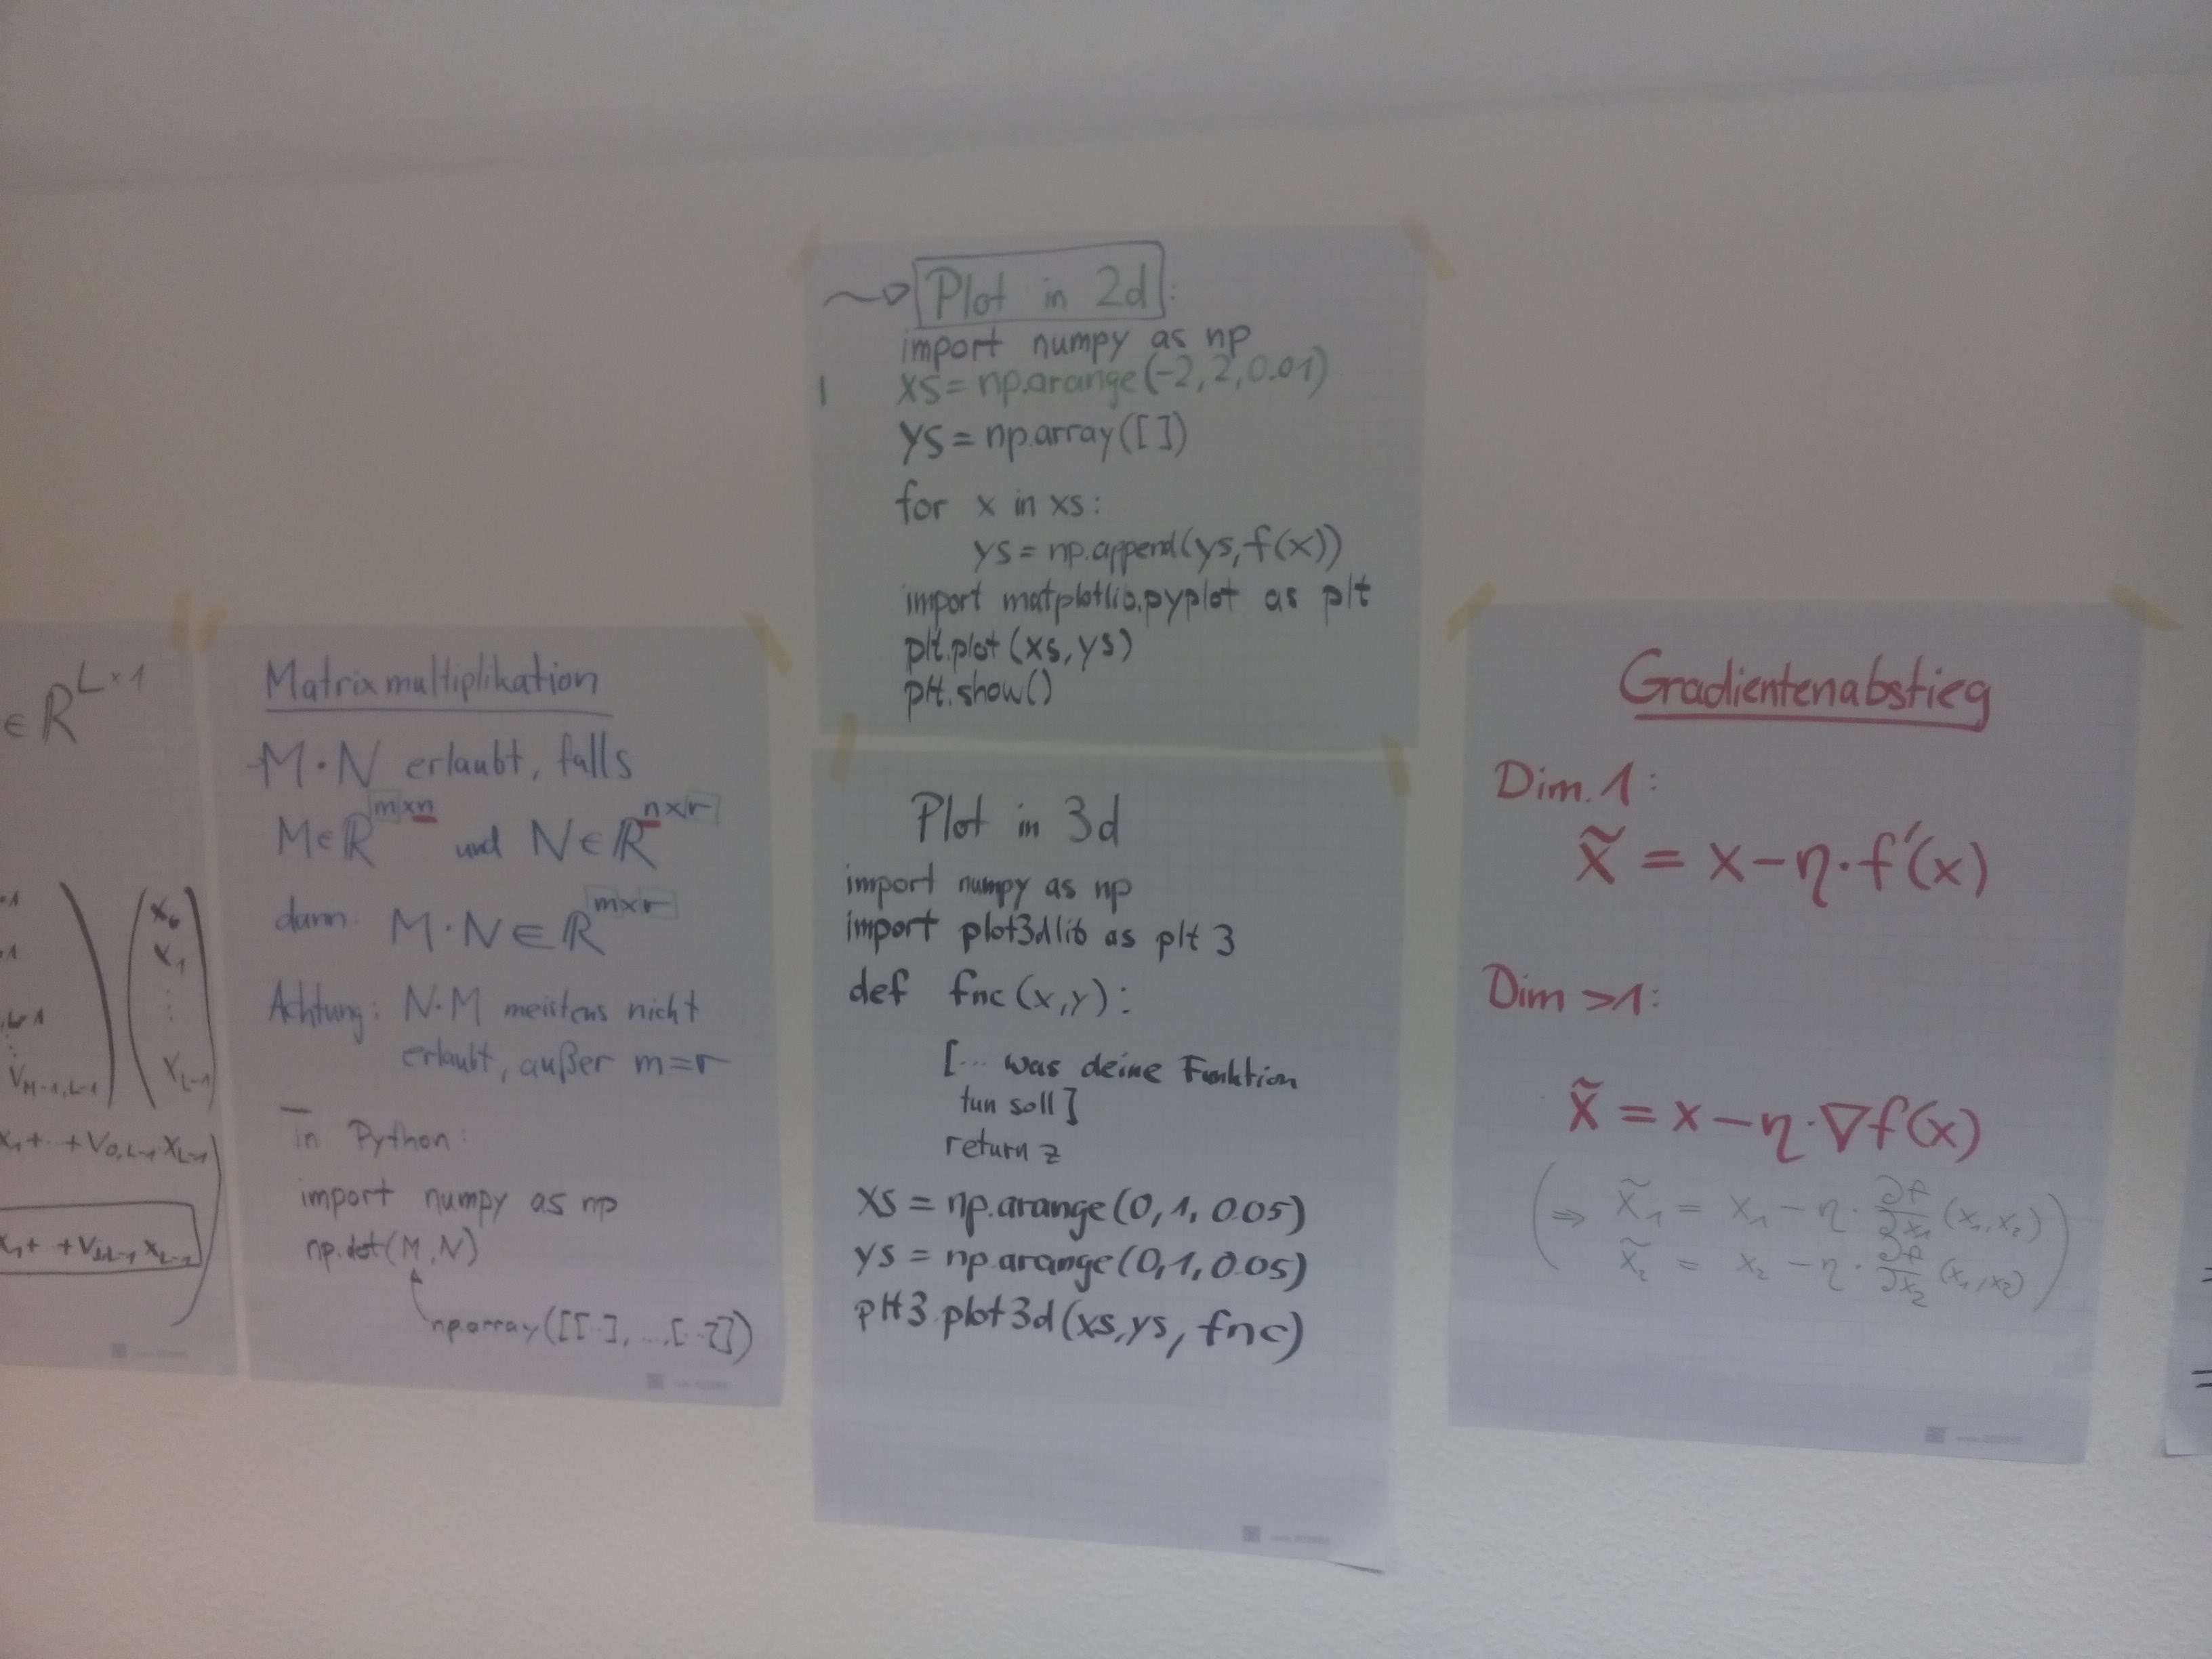 ∈ ℝ^{L×1}
x_0
x_1
⋮
x_{L-1}
V_{M-1,L-1}
x_1 + ·· + V_{0,L-1} x_{L-1}
Matrixmultiplikation
M·N erlaubt, falls
M∈ℝ^{m×n} und N∈ℝ^{n×r}
dann M·N∈ℝ^{m×r}
Achtung: N·M meistens nicht
erlaubt, außer m=r
in Python:
import numpy as np
np.dot(M,N)
np.array([[·],...,[··]])
Plot in 2d:
import numpy as np
xs = np.arange(-2, 2, 0.01)
ys = np.array([ ])
for x in xs:
ys = np.append(ys, f(x))
import matplotlib.pyplot as plt
plt.plot(xs, ys)
plt.show()
Plot in 3d
import numpy as np
import plot3dlib as plt 3
def fnc(x,y):
[... was deine Funktion
tun soll]
return z
xs = np.arange(0, 1, 0.05)
ys = np.arange(0, 1, 0.05)
plt3.plot3d(xs, ys, fnc)
Gradientenabstieg
Dim. 1:
x̃ = x - η·f'(x)
Dim >1:
x̃ = x - η·∇f(x)
(⇒ x̃_1 = x_1 - η · ∂f/∂x_1 (x_1, x_2)
x̃_2 = x_2 - η · ∂f/∂x_2 (x_1, x_2))